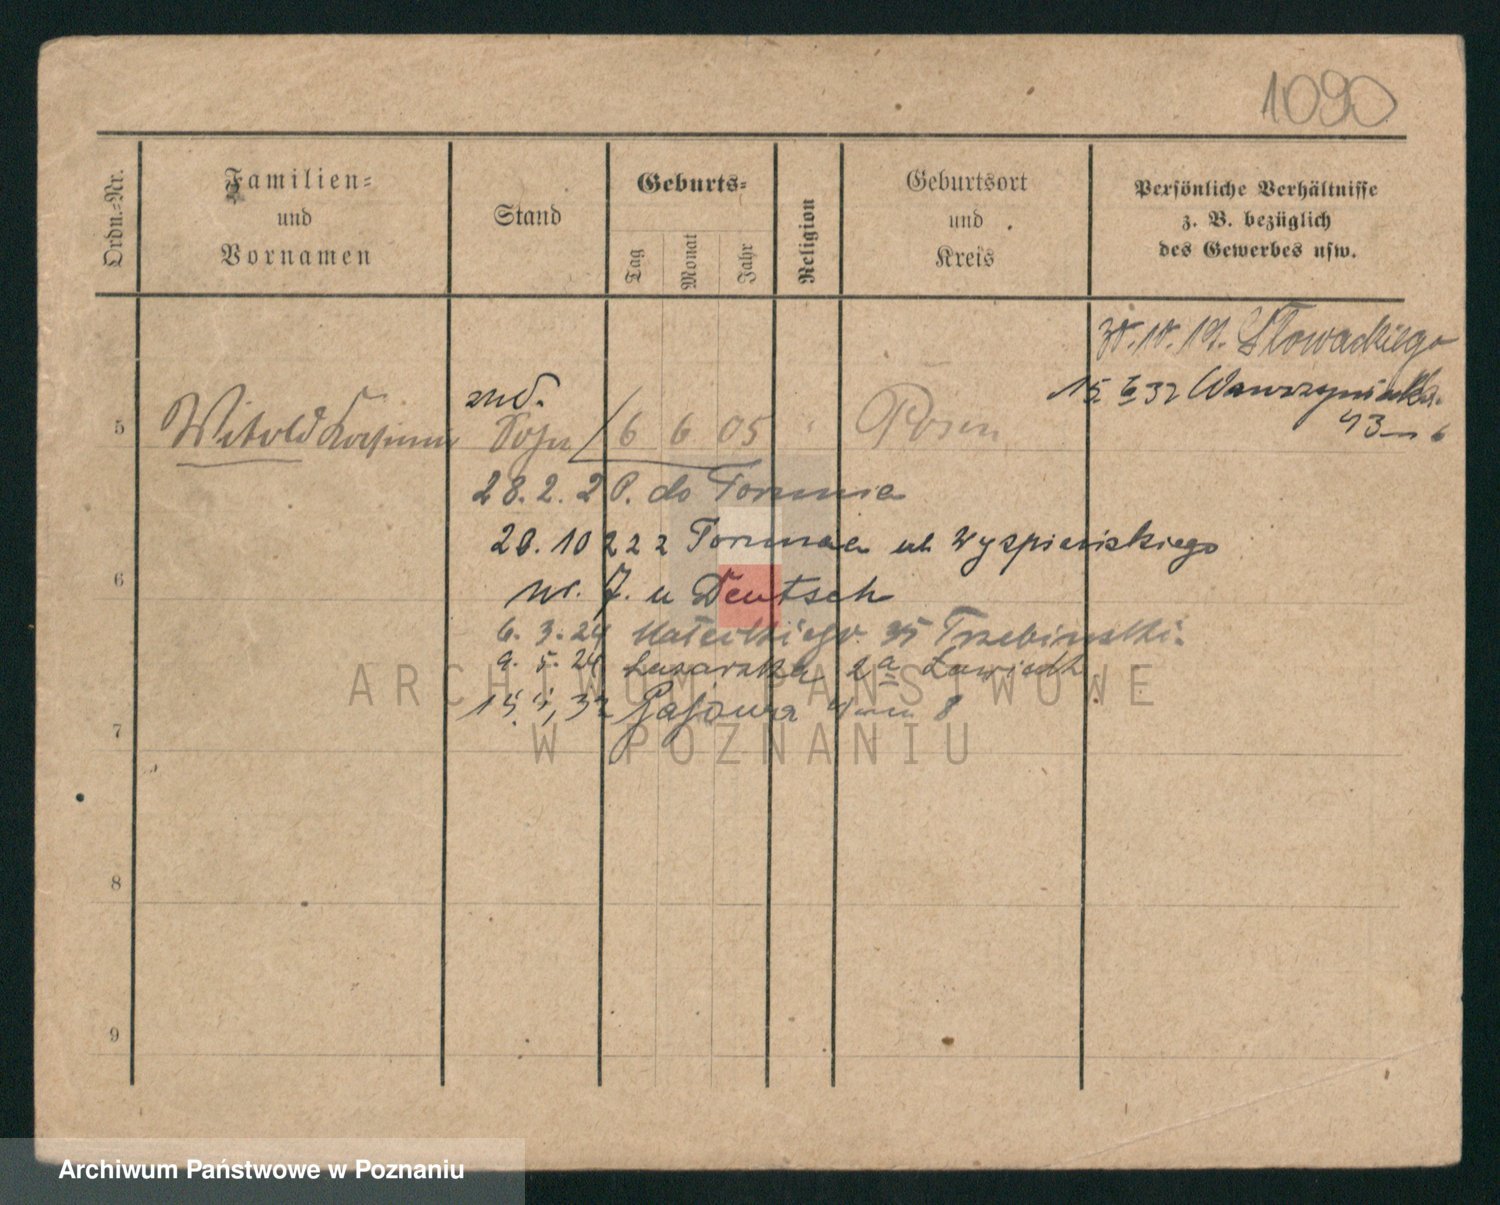 1090
Ordn.-Nr.
Familien-
und
Vornamen
Stand
Geburts-
Tag
Monat
Jahr
Religion
Geburtsort
und
Kreis
Persönliche Verhältnisse
z. B. bezüglich
des Gewerbes usw.
Słowackiego
15. 6 32 Wawrzyniaka
43 m 6
5 Witold Sohn 6 6 05 Posen
28. 2. 2 do Torunia
20. 10 22 z Torunia ul Wyspiańskiego
6 nr. 7. u Deutsch
6. 3. 24 Małeckiego 35 Trzebiński
9. 5. 24 Łazarska 2a
7 15, 5, 32 Gajowa 4 m 8
8
9
ARCHIWUM PAŃSTWOWE
W POZNANIU
Archiwum Państwowe w Poznaniu